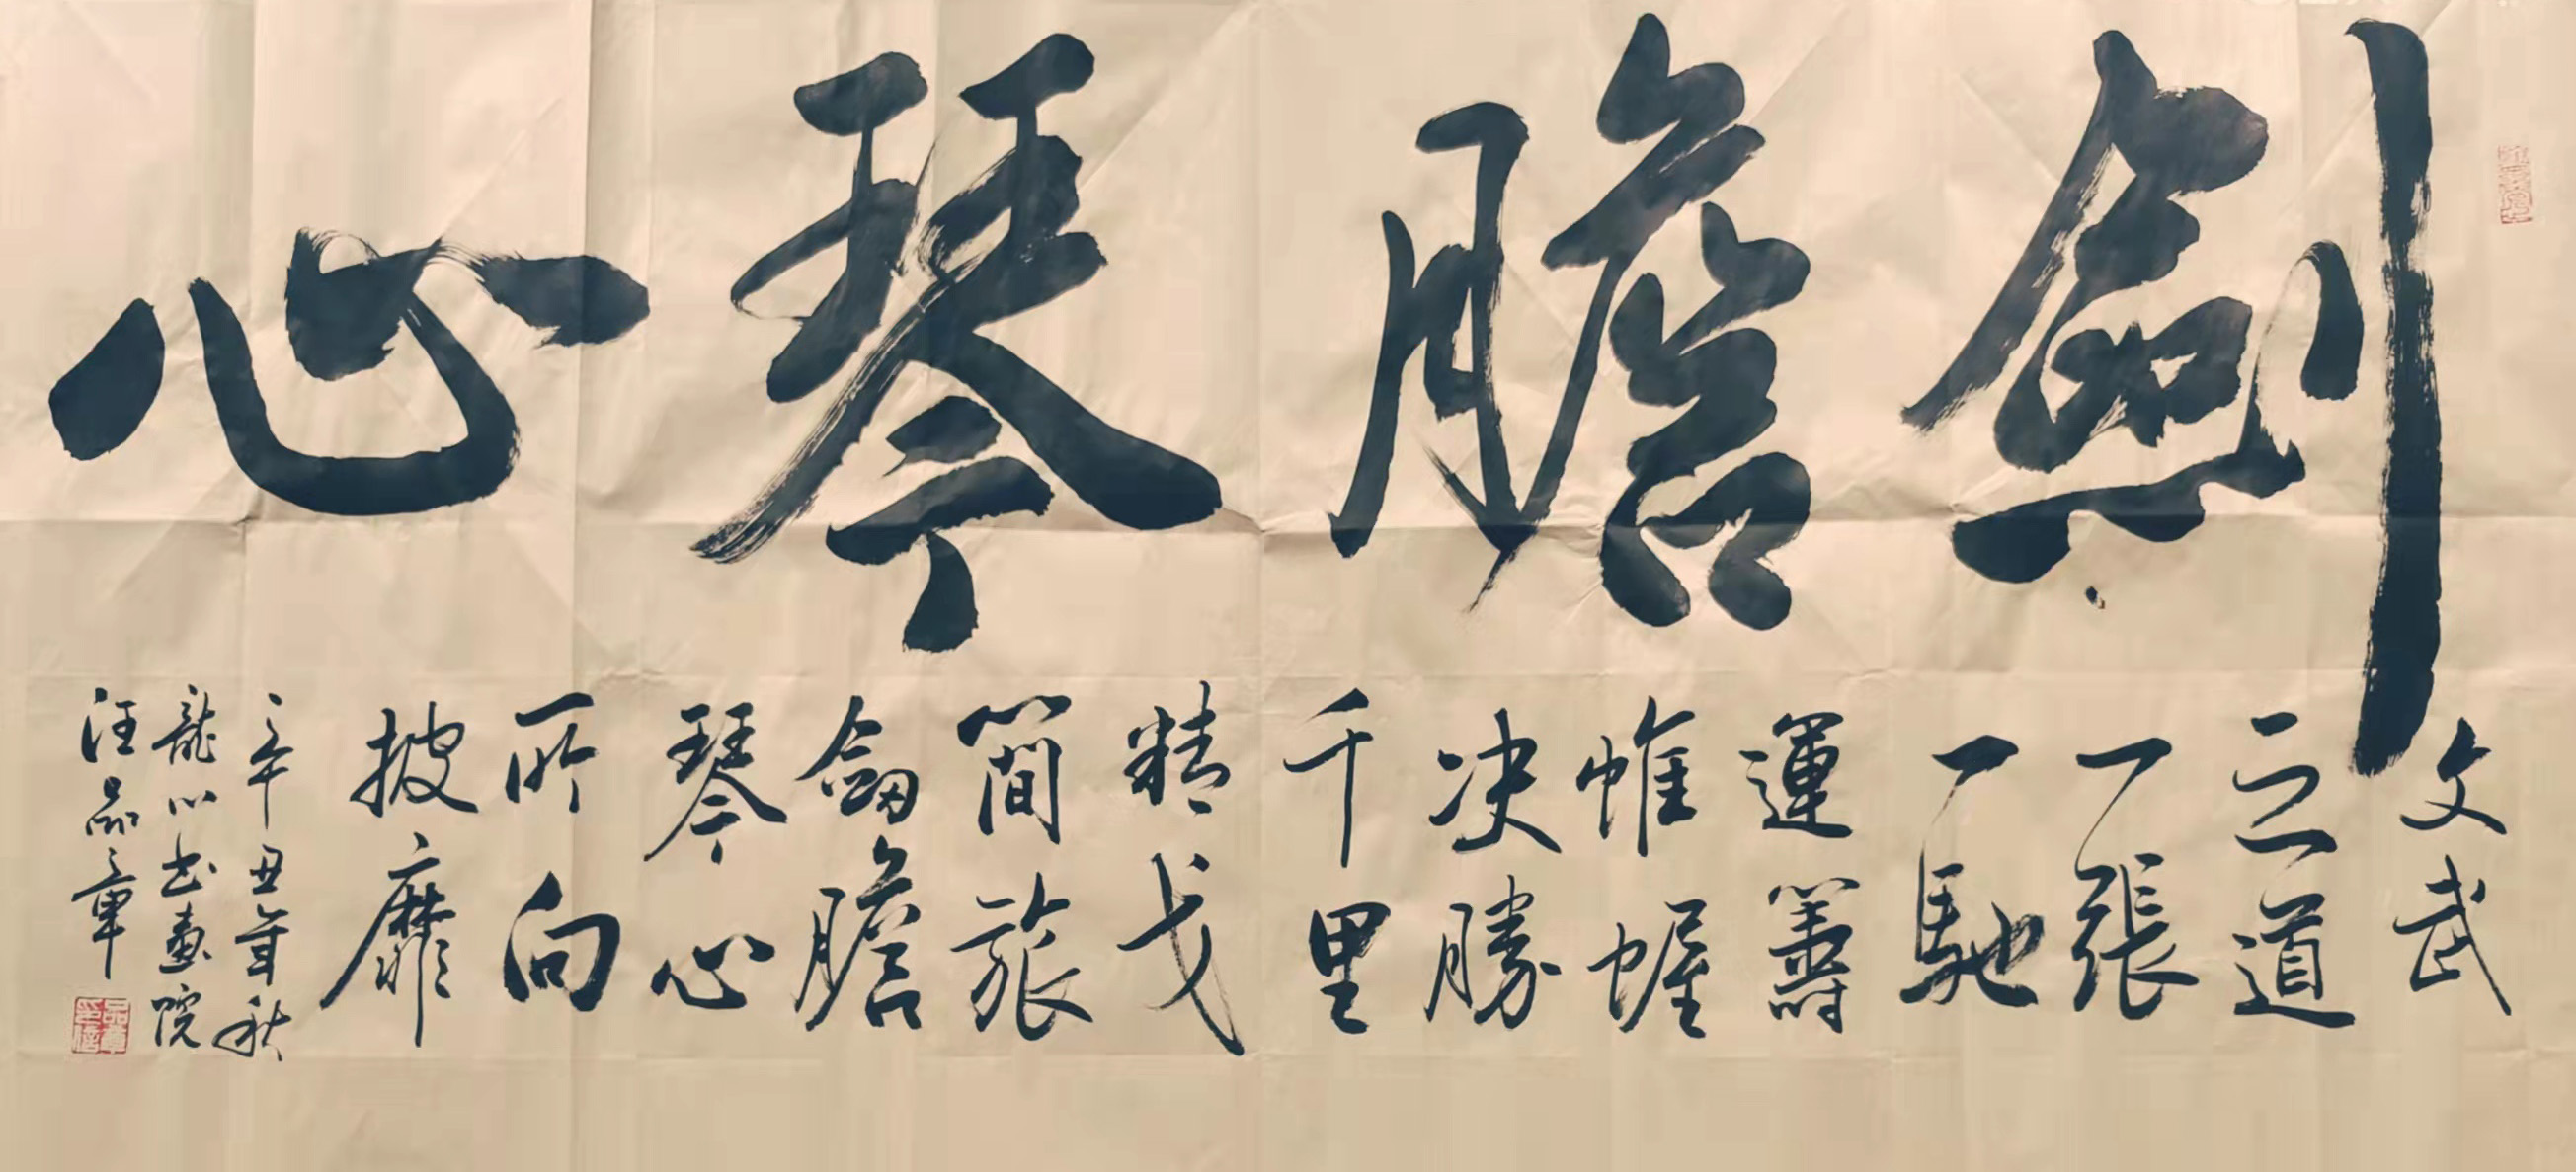 劍膽琴心
文武
之道
一張
一馳
運籌
帷幄
決勝
千里
精戈
簡旅
劔膽
琴心
所向
披靡
辛丑年秋
龍山书畫院
汪品章
品章